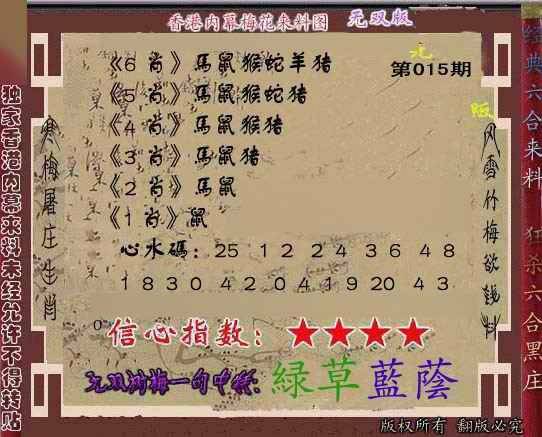 香港内幕梅花来料图 无双版
无
版
第015期
《6 肖》馬鼠猴蛇羊猪
《5 肖》馬鼠猴蛇猪
《4 肖》馬鼠猴猪
《3 肖》馬鼠猪
《2 肖》馬鼠
《1 肖》鼠
心水碼：25 12 24 36 48
18 30 42 04 19 20 43
信心指数：★★★★
无双湖梅一句中特：綠草藍蔭
版权所有 翻版必究
独家香港内幕来料未经允许不得转贴
寒梅屠庄生肖
风雪竹梅欲钱料
经典六合来料 狂杀六合黑庄